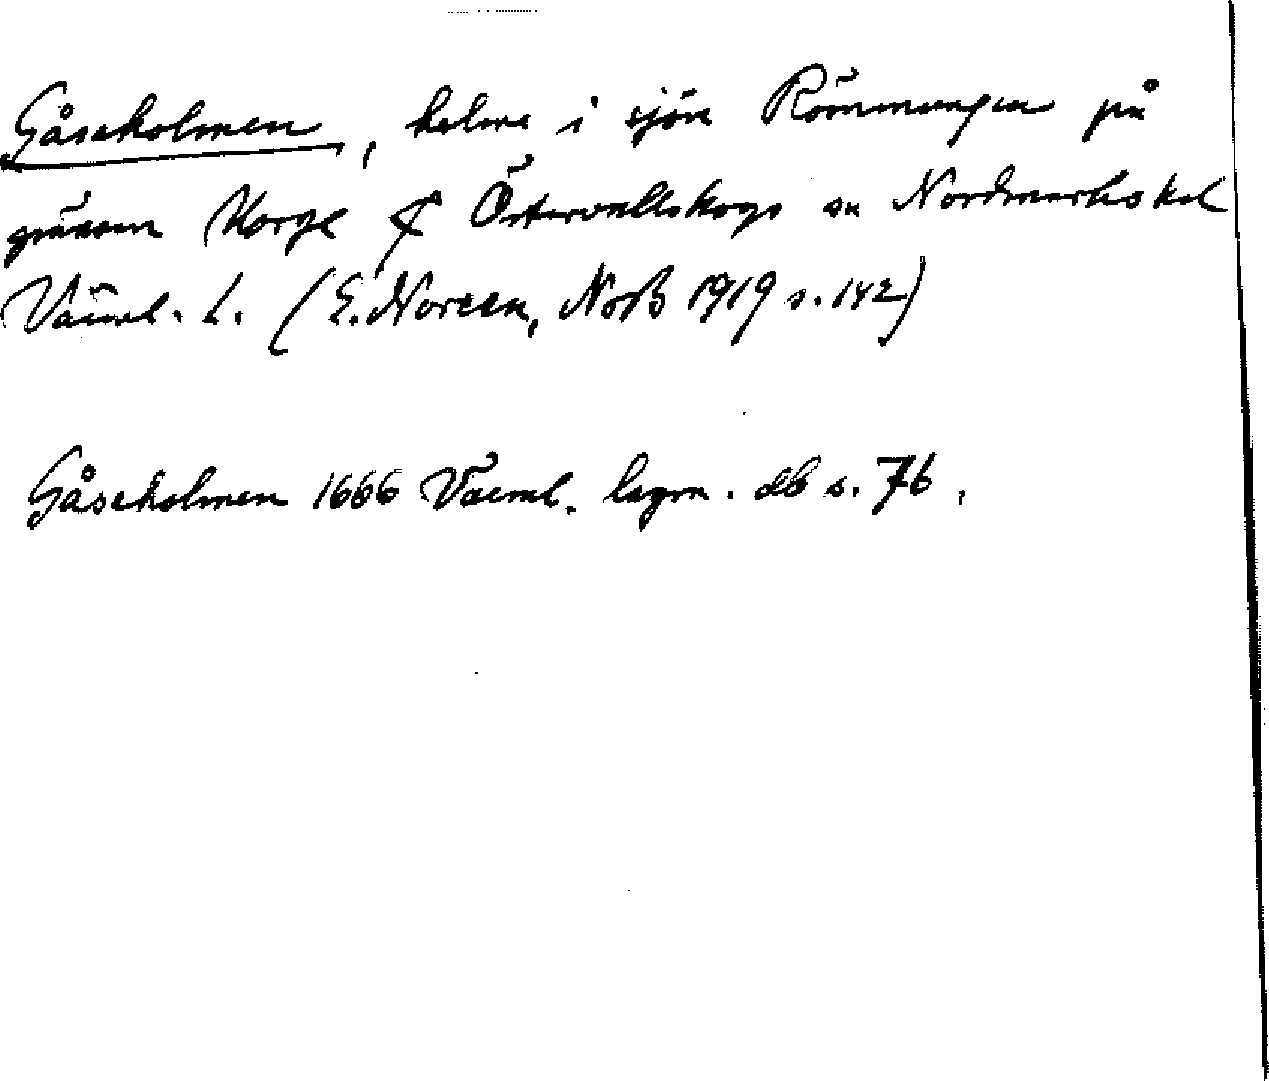 Gåseholmen, holme i sjön Römmungen på
gränsen Norge & Östervallskogs sn Nordmarks hd
Värml. l. (E. Noreen, NoB 1919 s. 142)
Gåseholmen 1666 Värml. lagm. db s. 76.